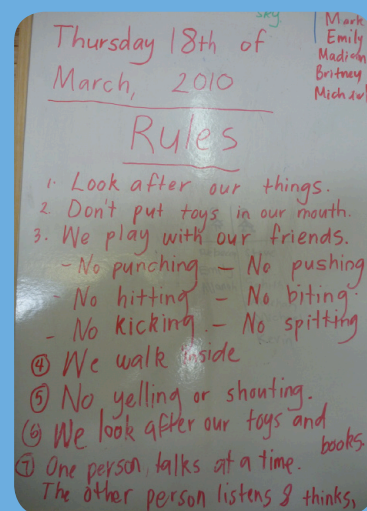 sky
Mark
Emily
Madison
Britney
Michael
Thursday 18th of
March, 2010
Rules
1. Look after our things.
2. Don't put toys in our mouth.
3. We play with our friends.
- No punching - No pushing
- No hitting - No biting.
- No kicking. - No spitting
④ We walk inside
⑤ No yelling or shouting.
⑥ We look after our toys and
books.
⑦ One person talks at a time.
The other person listens & thinks,